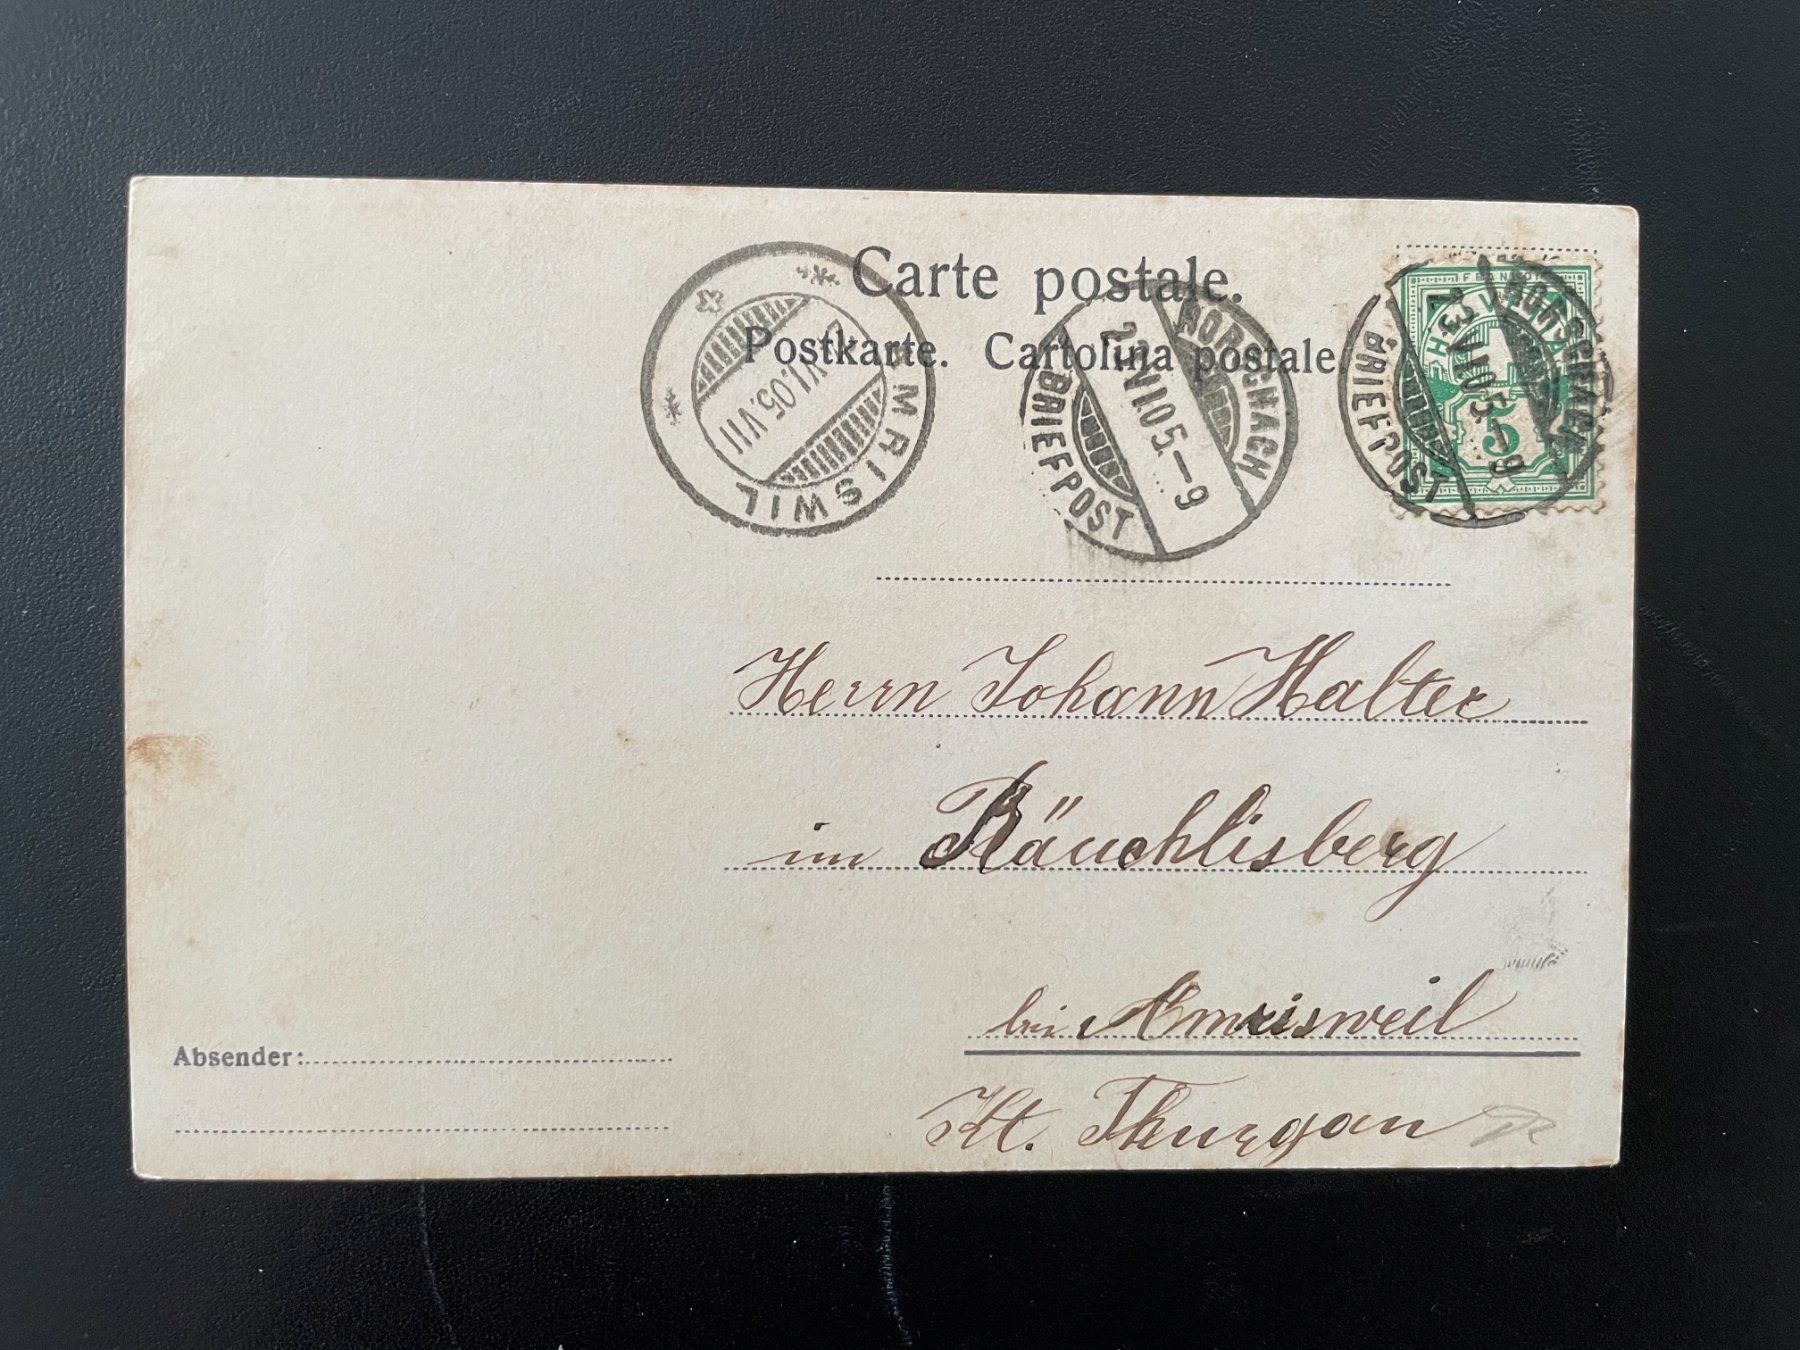 Carte postale.
Postkarte. Cartolina postale.
AMRISWIL
VI.05.VII
RORSCHACH
23.VI.05.–9
BRIEFPOST
FRANCO
HELVETIA
5
RORSCHACH
23.VI.05.–9
BRIEFPOST
Herrn Johann Halter
im Räuchlisberg
bei Amrisweil
Kt. Thurgau
Absender: